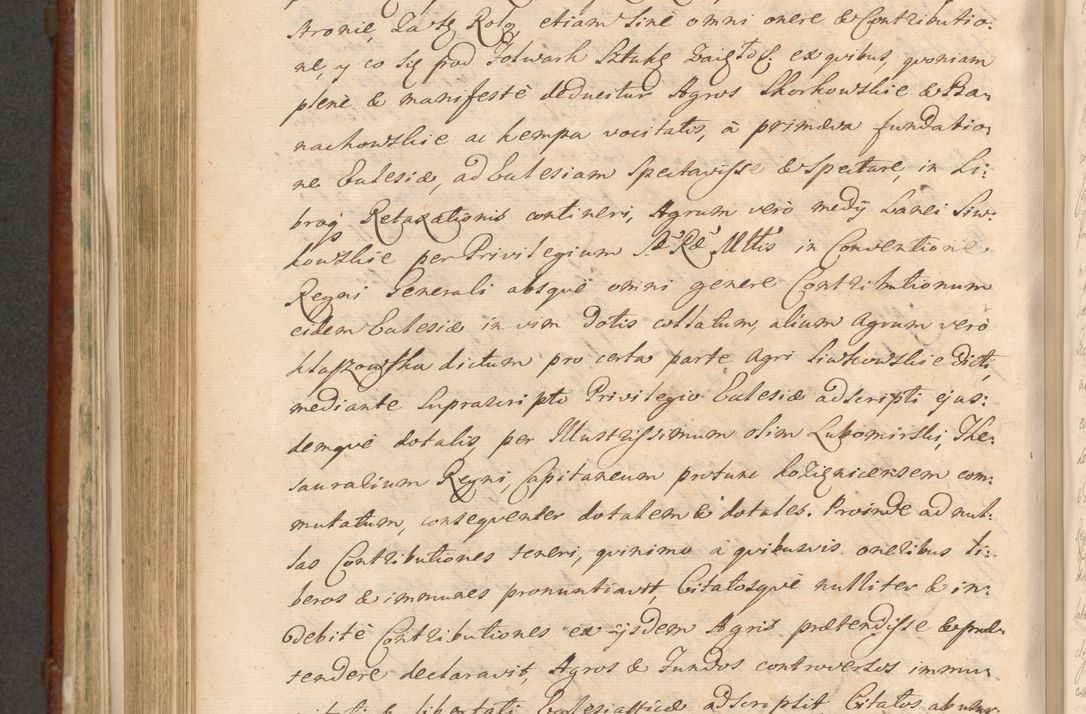 stronie, Za tę Rolą etiam sine omni onere & Contributio-
ne, y co się pod Folwark Sztukę Zaięto: ex quibus, quoniam
plenè & manifestè deducitur Agros Skorkowskie & Ba-
nachowskie ac kempa vocitatis, à primæva fundatio-
ne Eulesiæ, ad Eulesiam spectavisse & spectare, in Li-
brọ Retaxationis contineri, Agrum verò medij Lanei Siw-
kowskie per Privilegium S. Rē Mttis in Conventione
Regni Generali absquè omni genere Contributionum
eidem Eulesiæ in vim dotis collatum, alium Agrum verò
dictum pro certa parte Agri Siwkowskie dicti,
mediante suprascripto Privilegio Eulesiæ adscripti ejus-
demquè dotalis, per Illustrissimum olim Lubomirski, The-
saurarium Regni, Capitaneum protunc Koźignicensem com-
mutatum, consequenter dotalem & dotales. Proinde ad nul-
las Contributiones teneri, quinimo à quibusvis oneribus li-
beros & immunes pronuntiavit, Citatosquè nulliter & in-
debitè Contributiones ex ijsdem Agris prætendisse & præ-
tendere declaravit, Agros & Fundos controversos immu-
nitati & libertati Ecclesiasticæ adscripsit Citatos ab